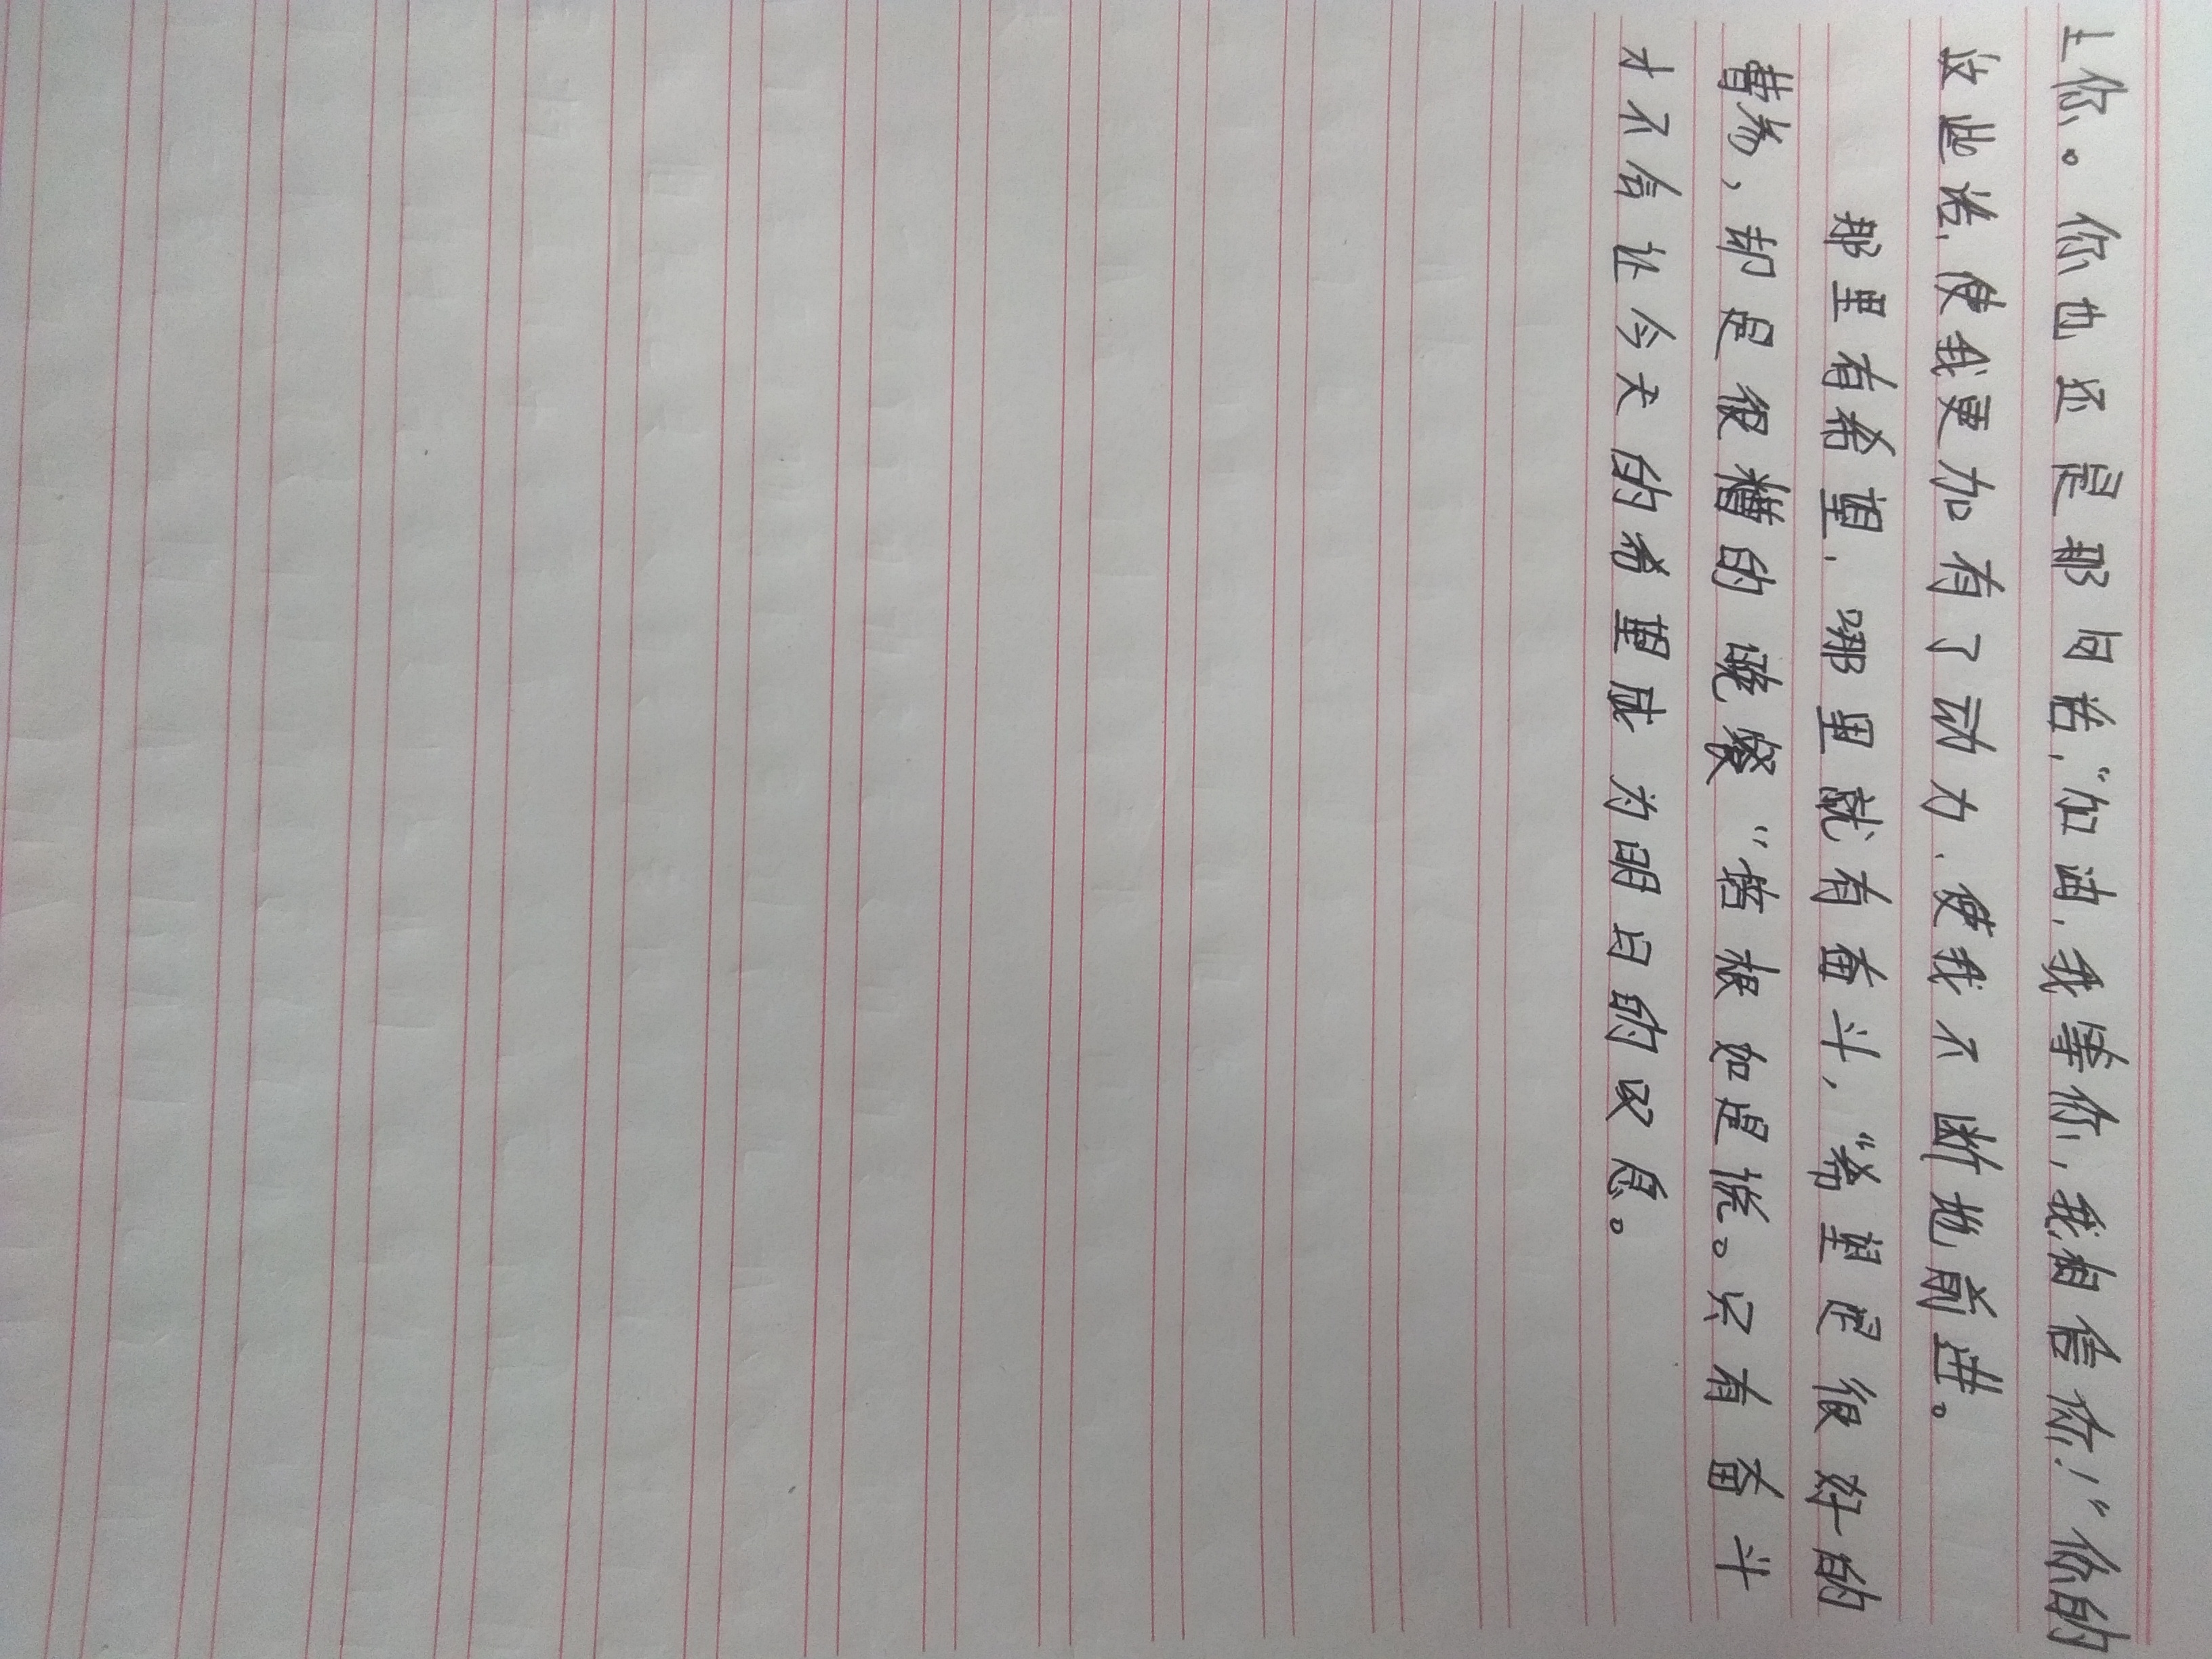 上你。你也还是那句话,“加油,我等你,我相信你!”你的
这些话,使我更加有了动力、使我不断地前进。
那里有希望,哪里就有奋斗,“希望是很好的
早餐,却是很糟的晚餐”培根如是说。只有奋斗
才不会让今天的希望成为明日的叹息。